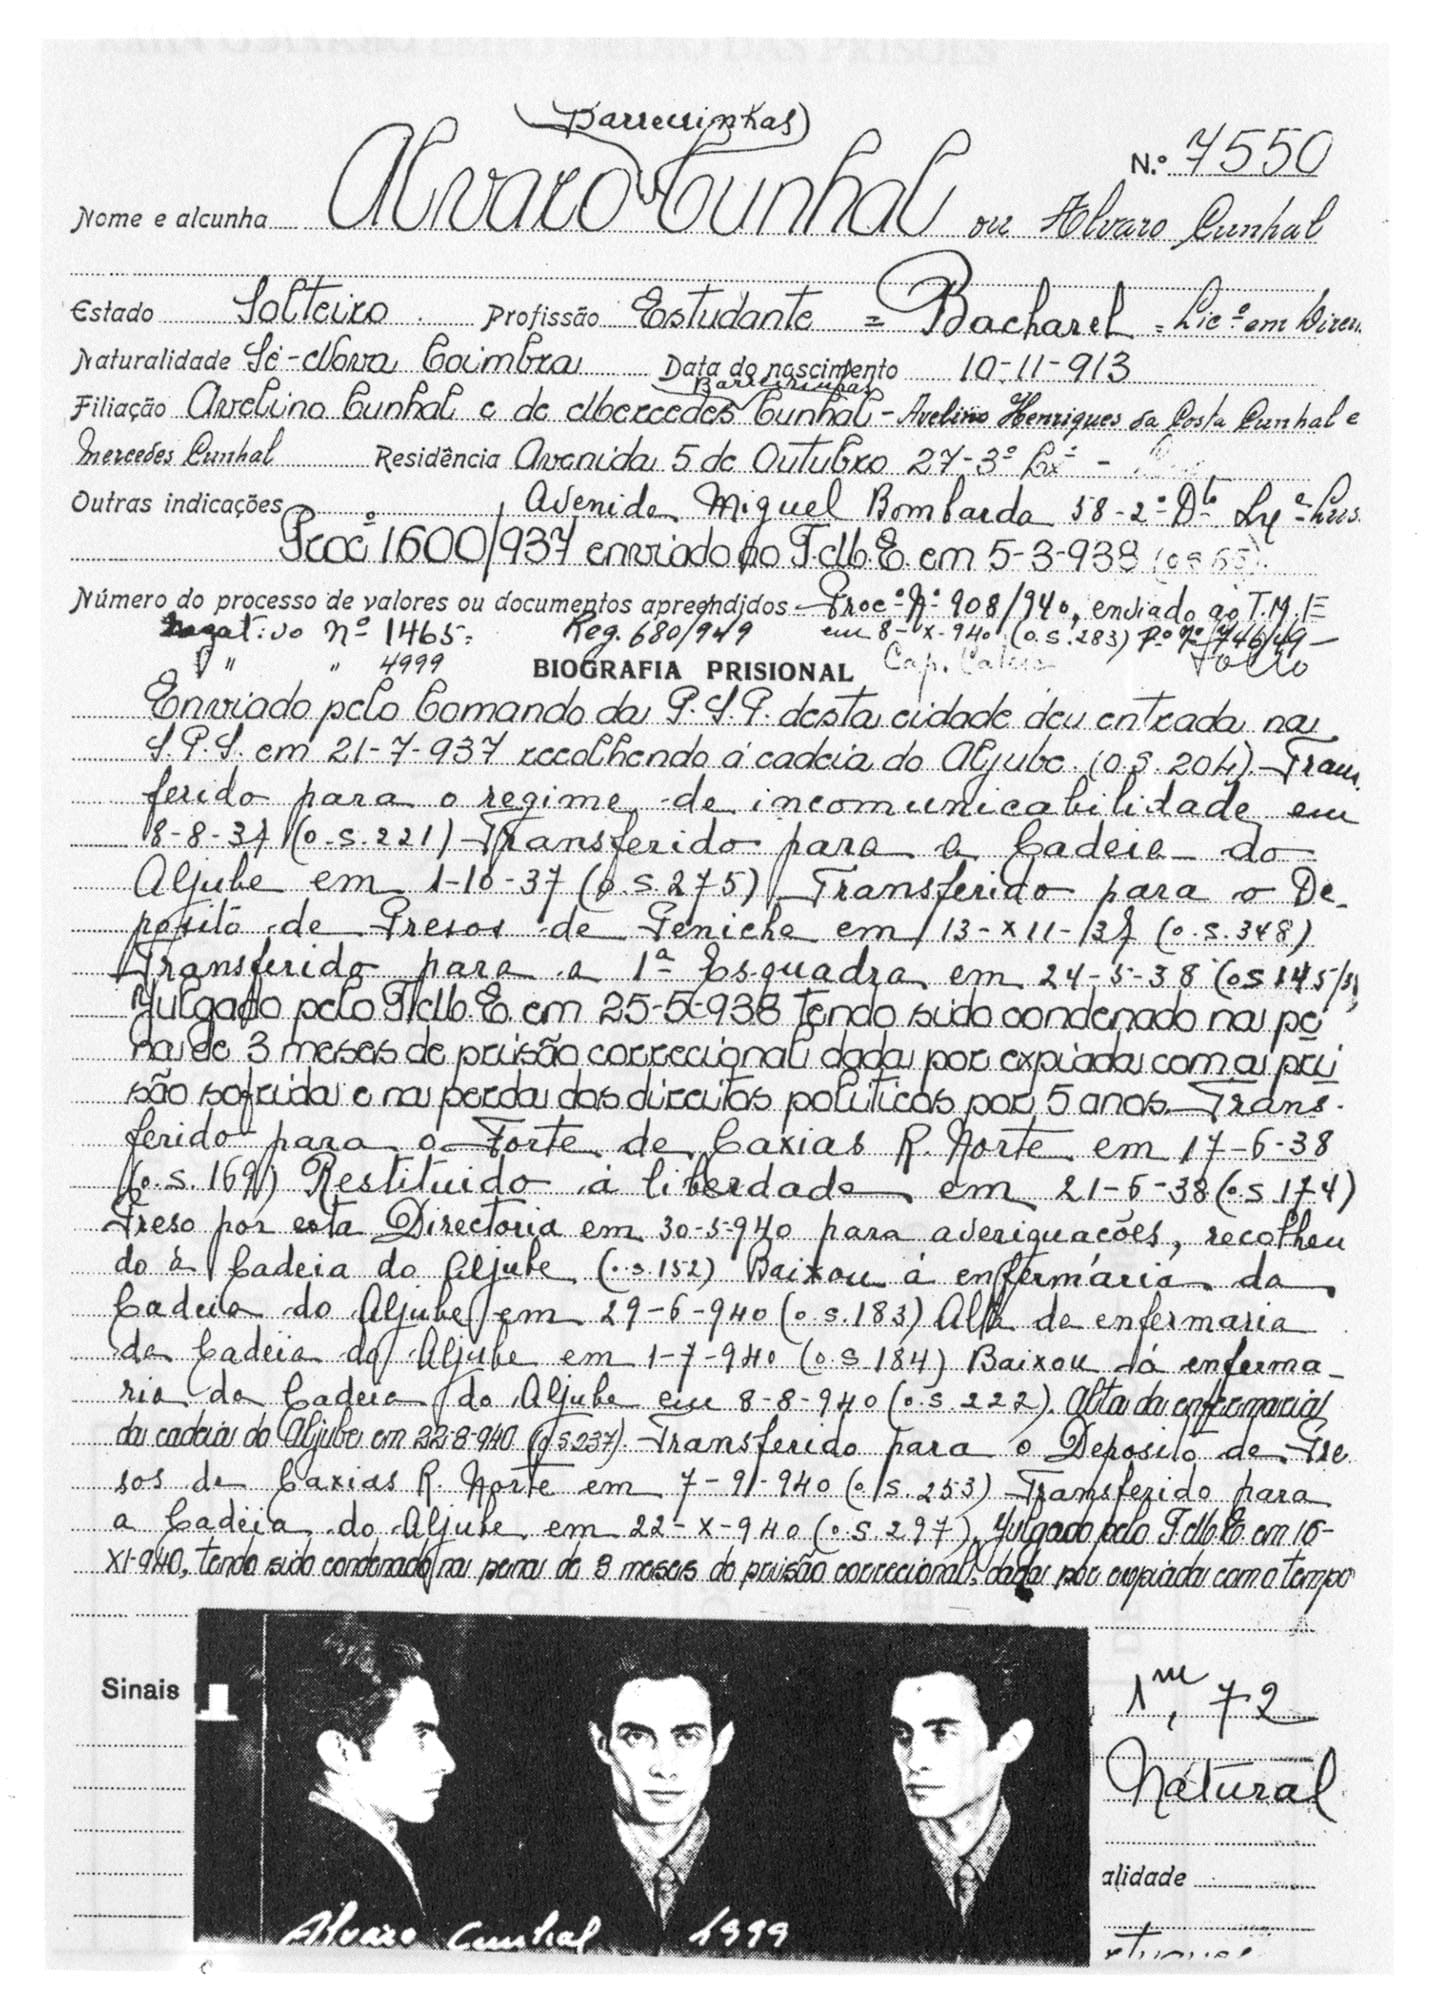 Barreirinhas)
N.º 7550
Nome e alcunha Alvaro Cunhal ou Alvaro Cunhal
Estado Solteiro. Profissão Estudante = Bacharel = Lic.º em Direi.
Naturalidade Sé-Nova Coimbra Data do nascimento 10-11-913
Barreirinhas
Filiação Avelino Cunhal e de Mercedes Cunhal - Avelino Henriques da Costa Cunhal e
Mercedes Cunhal Residência Avenida 5 de Outubro 27-3º Lxª -
Outras indicações Avenida Miguel Bombarda 58-2º Dto Lxª
Procº 1600/937 enviado ao T.M.E. em 5-3-938 (o s 65).
Número do processo de valores ou documentos apreendidos Procº Nº 908/940, enviado ao T.M.E
Negativo nº 1465; Reg. 680/949 em 8-X-940 (o.s.283) Pº nº 746/49 -
" " 4999 BIOGRAFIA PRISIONAL Cap.
Enviado pelo Comando da P.S.P. desta cidade deu entrada na
S.P.S. em 21-7-937 recolhendo á cadeia do Aljube. (o.s.204). Trans
ferido para o regime de incomunicabilidade em
8-8-37 (o.s.221) Transferido para a Cadeia do
Aljube em 1-10-37 (o.s.275) Transferido para o De-
posito de Presos de Peniche em 13-XII-37 (o.s.348)
Transferido para a 1ª Esquadra em 24-5-38 (os 145/
Julgado pelo T.M.E. em 25-5-938 tendo sido condenado na pe
na de 3 meses de prisão correcional dada por expiada com a pri
são sofrida e na perda dos direitos politicos por 5 anos. Trans-
ferido para o Forte de Caxias R. Norte em 17-6-38
(o.s.169) Restituido á liberdade em 21-6-38 (o.s.174)
Preso por esta Directoria em 30-5-940 para averiguacões, recolhen
do á Cadeia do Aljube (o.s.152) Baixou á enfermaria da
Cadeia do Aljube em 29-6-940 (o.s.183) Alta da enfermaria
da Cadeia do Aljube em 1-7-940 (o.s 184) Baixou á enferma-
ria da Cadeia do Aljube em 8-8-940 (o.s.222). Alta da enfermaria
da cadeia do Aljube em 22-8-940 (o.s.237). Transferido para o Deposito de Pre
sos de Caxias R. Norte em 7-9-940 (o.s.253) Transferido para
a Cadeia do Aljube em 22-X-940 (o.s.297). Julgado pelo T.M.E. em 16-
XI-940, tendo sido condenado na pena de 8 meses de prisão correcional, dada por expiada com o tempo
Sinais
1m,72
Natural
alidade
Alvaro Cunhal 4999